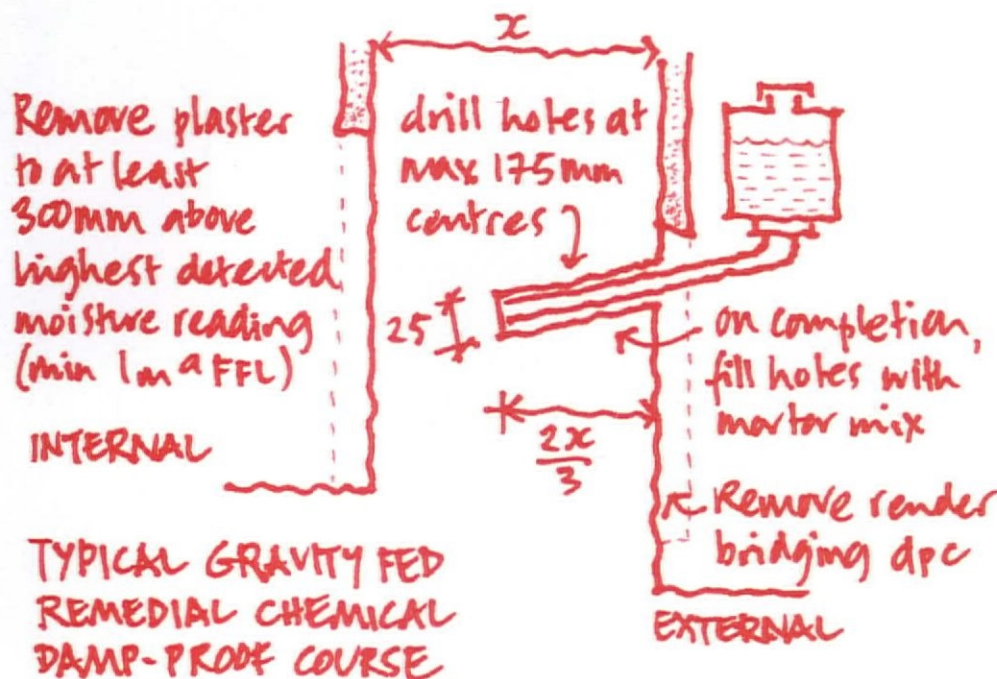 x
Remove plaster
to at least
300mm above
highest detected
moisture reading
(min 1m a FFL)
INTERNAL
drill holes at
max 175mm
centres
25
2x
3
on completion,
fill holes with
mortar mix
Remove render
bridging dpc
EXTERNAL
TYPICAL GRAVITY FED
REMEDIAL CHEMICAL
DAMP-PROOF COURSE